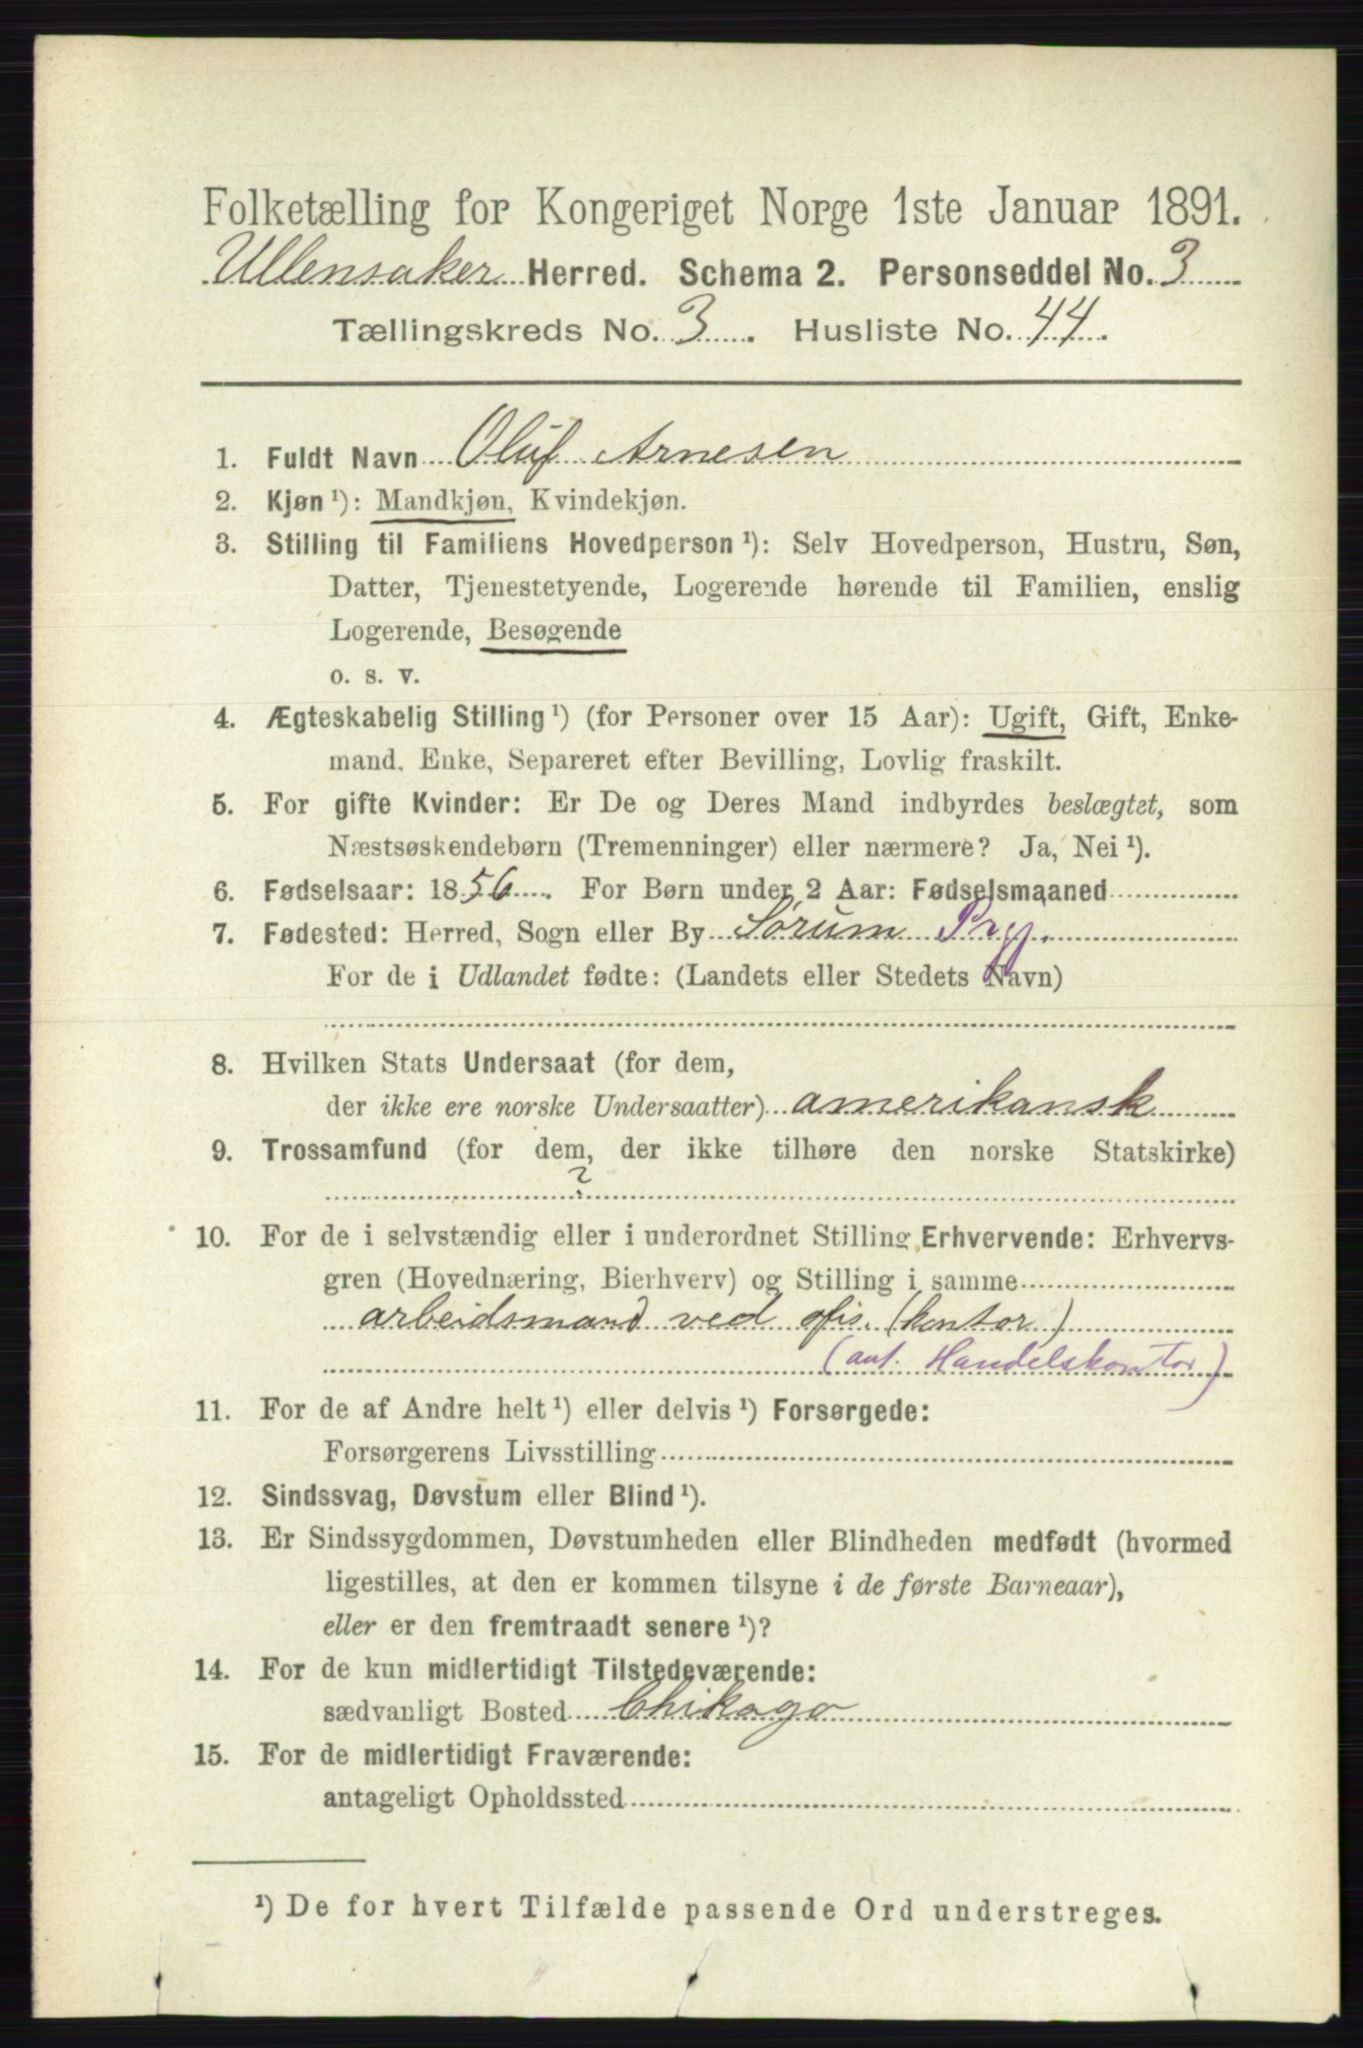 Folketælling for Kongeriget Norge 1ste Januar 1891.
Ullensaker Herred. Schema 2. Personseddel No. 3
Tællingskreds No. 3. Husliste No. 44.
1. Fuldt Navn Oluf Arnesen
2. Kjøn ¹): Mandkjøn, Kvindekjøn.
3. Stilling til Familiens Hovedperson ¹): Selv Hovedperson, Hustru, Søn,
Datter, Tjenestetyende, Logerende hørende til Familien, enslig
Logerende, Besøgende
o. s. v.
4. Ægteskabelig Stilling ¹) (for Personer over 15 Aar): Ugift, Gift, Enke-
mand, Enke, Separeret efter Bevilling, Lovlig fraskilt.
5. For gifte Kvinder: Er De og Deres Mand indbyrdes beslægtet, som
Næstsøskendebørn (Tremenninger) eller nærmere? Ja, Nei ¹).
6. Fødselsaar: 1856. For Børn under 2 Aar: Fødselsmaaned
7. Fødested: Herred, Sogn eller By Sørum Prgj.
For de i Udlandet fødte: (Landets eller Stedets Navn)
8. Hvilken Stats Undersaat (for dem,
der ikke ere norske Undersaatter) amerikansk
9. Trossamfund (for dem, der ikke tilhøre den norske Statskirke)
?
10. For de i selvstændig eller i underordnet Stilling Erhvervende: Erhvervs-
gren (Hovednæring, Bierhverv) og Stilling i samme
arbeidsmand ved ofis. (kontor)
(ant. Handelskontor)
11. For de af Andre helt ¹) eller delvis ¹) Forsørgede:
Forsørgerens Livsstilling
12. Sindssvag, Døvstum eller Blind ¹).
13. Er Sindssygdommen, Døvstumheden eller Blindheden medfødt (hvormed
ligestilles, at den er kommen tilsyne i de første Barneaar),
eller er den fremtraadt senere ¹)?
14. For de kun midlertidigt Tilstedeværende:
sædvanligt Bosted Chikago
15. For de midlertidigt Fraværende:
antageligt Opholdssted
¹) De for hvert Tilfælde passende Ord understreges.